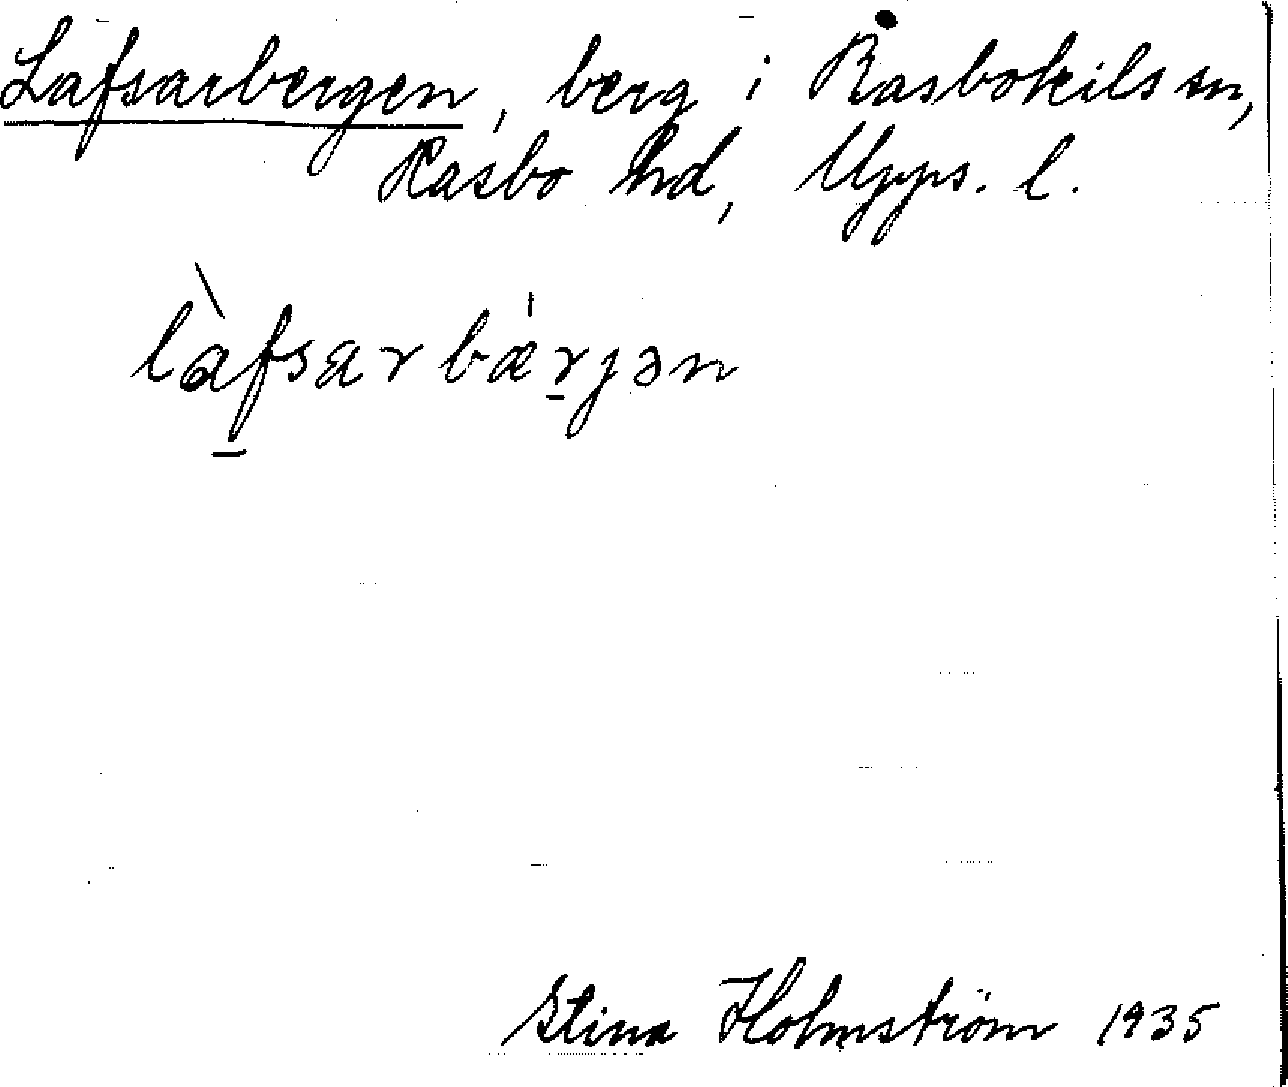 Lafsarbergen, berg i Rasbokils sn,
Rasbo hd, Upps. l.
làfsarbæ̍rjən
Stina Holmström 1935